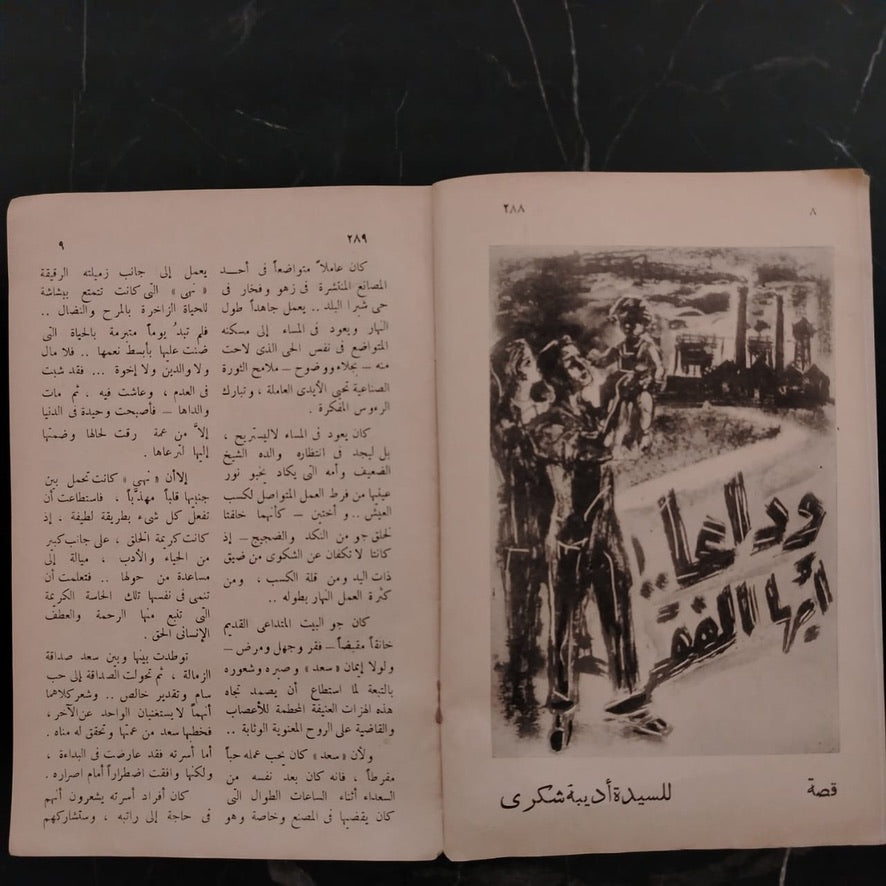 ٨
٢٨٨
وداعا..
أيها الفقر
قصة
للسيدة أديبة شكرى
٢٨٩
٩
كان عاملاً متواضعاً فى أحـــد
المصانع المنتشرة فى زهو وفخار فى
حى شبرا البلد .. يعمل جاهداً طول
النهار ويعود فى المساء إلى مسكنه
المتواضع فى نفس الحى الذى لاحت
منه – بجلاء ووضوح – ملامح الثورة
الصناعية تحيى الأيدى العاملة ، وتبارك
الرءوس المفكرة .
كان يعود فى المساء لا ليستريح ،
بل ليجد فى انتظاره والده الشيخ
الضعيف وأمه التى يكاد يخبو نور
عينيها من فرط العمل المتواصل لكسب
العيش .. و أختين – كأنهما خلقتا
لخلق جو من النكد والضجيج – إذ
كانتا لا تكفان عن الشكوى من ضيق
ذات اليد ومن قلة الكسب ، ومن
كثرة العمل النهار بطوله ..
كان جو البيت المتداعى القديم
خانقاً مقبضاً – فقر وجهل ومرض –
ولولا إيمان « سعد » وصبره وشعوره
بالتبعة لما استطاع أن يصمد تجاه
هذه الهزات العنيفة المحطمة للأعصاب
والقاضية على الروح المعنوية الوثابة ..
ولأن « سعد » كان يحب عمله حباً
مفرطاً ، فانه كان يعد نفسه من
السعداء أثناء الساعات الطوال التى
كان يقضيها فى المصنع وخاصة وهو
يعمل إلى جانب زميلته الرقيقة
« نهى » التى كانت تتمتع ببشاشة
للحياة الزاخرة بالمرح والنضال ..
فلم تبدُ يوماً متبرمة بالحياة التى
ضنت عليها بأبسط نعمها .. فلا مال
ولا والدين ولا إخوة ... فقد شبت
فى العدم ، وعاشت فيه ، ثم مات
والداها – فأصبحت وحيدة فى الدنيا
إلاَّ من عمة رقت لحالها وضمتها
إليها لترعاها .
إلا أن « نهى » كانت تحمل بين
جنبيها قلباً مهذَّباً ، فاستطاعت أن
تفعل كل شىء بطريقة لطيفة ، إذ
كانت كريمة الخلق ، على جانب كبير
من الحياء والأدب ، ميالة إلى
مساعدة من حولها .. فتعلمت أن
تنمى فى نفسها تلك الحاسة الكريمة
التى تنبع منها الرحمة والعطف
الإنسانى الحق .
توطدت بينها وبين سعد صداقة
الزمالة ، ثم تحولت الصداقة إلى حب
سام وتقدير خالص .. وشعر كلاهما
أنهما لا يستغنيان الواحد عن الآخر ،
فخطبها سعد من عمتها وتحقق له مناه .
أما أسرته فقد عارضت فى البداءة ،
ولكنها وافقت اضطراراً أمام اصراره .
كان أفراد أسرته يشعرون أنهم
فى حاجة إلى راتبه ، وستشاركهم